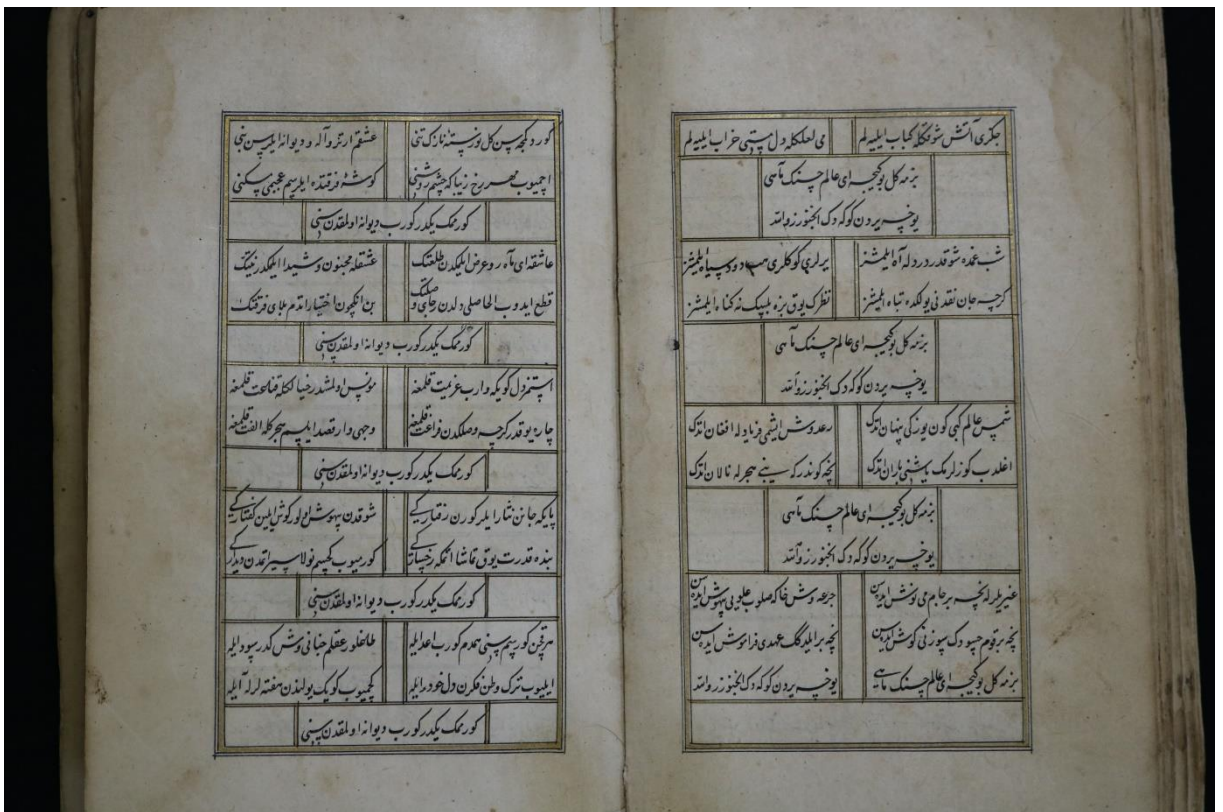 جگری آتش شوقکله کباب ایلیه لم می لعلکله دل مستی خراب ایلیه لم
بزمه کل بو کیجه ای عالم حسنک ماهی
یوخسه یردن کوکه دک الجنورز والله
شب غمده شو قدر درد دله آه ایلمشز یرلری کوکلری هب دود سیاه ایلمشز
کرچه جان نقدنی یولکده تباه ایلمشز نظرک یوق بزه بلسک نه کناه ایلمشز
بزمه کل بو کیجه ای عالم حسنک ماهی
یوخسه یردن کوکه دک الجنورز والله
شمس عالم کبی کون یوزکی پنهان اتدک رعد وش ایشمی فریاد له افغان اتدک
اغلدب کوزلرمک یاشنی باران اتدک نجه کوندر که سنی هجرله نالان اتدک
بزمه کل بو کیجه ای عالم حسنک ماهی
یوخسه یردن کوکه دک الجنورز والله
غیریلرله نجه بر جام می نوش ایده سن جرعه وش خاکه صلوب علویی بیهوش ایده سن
نجه بر قوم حسودک سوزنی کوش ایده سن نجه بر ایلدکک عهدی فراموش ایده سن
بزمه کل بو کیجه ای عالم حسنک ماهی یوخسه یردن کوکه دک الجنورز والله
کوردکجه سن کل نورسته نازک تنی عشقم ارتر واله و دیوانه ایلرسن بنی
اچمیوب مهر رخ زیبا که چشم روشنی کوشهٔ فرقتده ایلرسم عجبمی مسکنی
کورممک یکدر کورب دیوانه اولمقدن سنی
عاشقه ای ماه رو عرض ایلمکدن طلعتک عشقله مجنون و شیدا ایلمکدر نیتک
قطع ایدوب الحاصلی دلدن رجای وصلتک بن انکچون اختیار اتدم بلای فرقتک
کورممک یکدر کورب دیوانه اولمقدن سنی
استمز دل کویکه وارب عزیمت قلمغه مونس اولمشدر خیالکله قناعت قلمغه
چاره یوقدر کرچه وصلکدن فراغت قلمغه وجهی وار قصد ایلسم هجرکله الفت قلمغه
کورممک یکدر کورب دیوانه اولمقدن سنی
پایکه جانن نثار ایلر کورن رفتارکی شوقدن بیهوش اولور کوش ایلین کفتارکی
بنده قدرت یوق تماشا اتمکه رخسارکی کورمیوب کچسم نولا سیر اتمدن دیدارکی
کورممک یکدر کورب دیوانه اولمقدن سنی
هر قچن کورسم سنی همدم کورب اعدایله طاغلور عقلم کدر سودایله
ایلیوب ترک وطن فکرن دل خود رایله کچمیوب کویک یولندن هفته لرله آیله
کورممک یکدر کورب دیوانه اولمقدن سنی